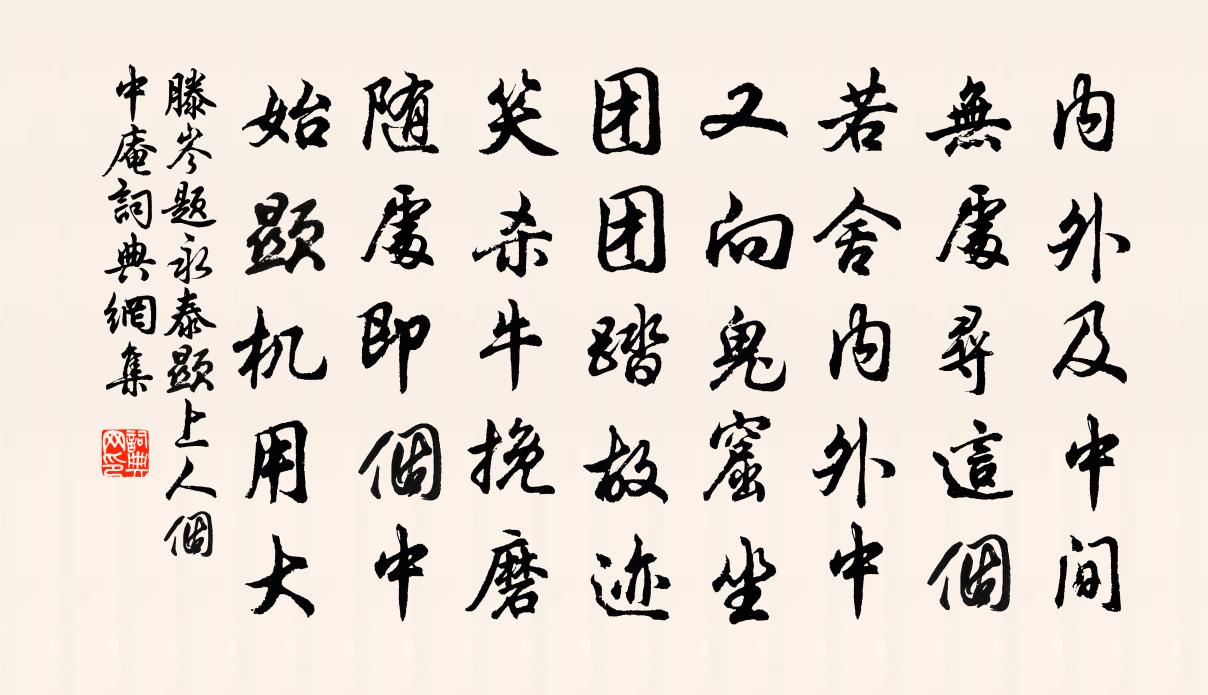 内外及中间
無處尋這個
若舍内外中
又向鬼窟坐
团团踏故迹
笑杀牛挽磨
随處即個中
始顕机用大
滕岑题永泰顕上人個
中庵詞典網集
詞典网印